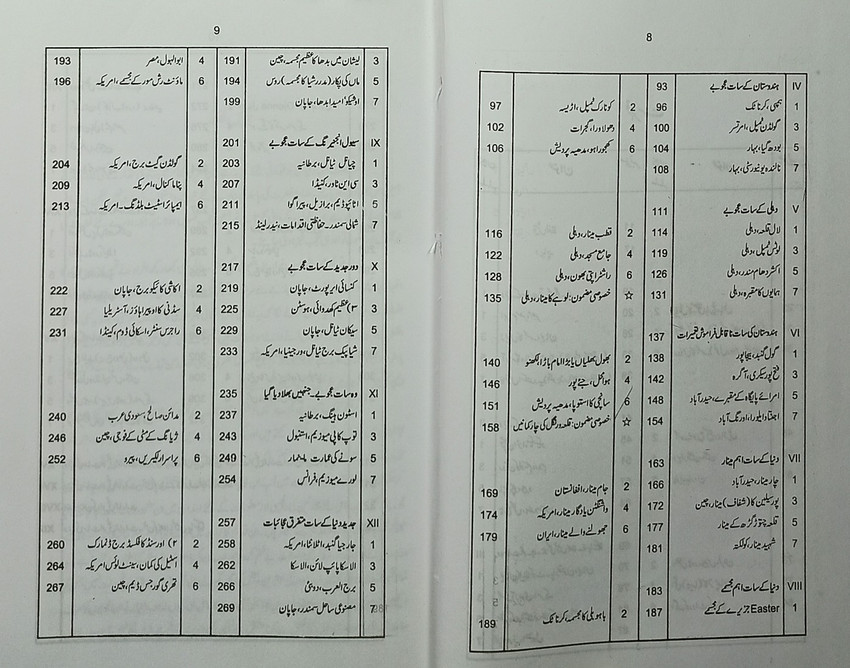 8
IV ہندوستان کے سات عجوبے 93
1 ہمپی، کرناٹک 96 2 کونارک ٹمپل، اڑیسہ 97
3 گولڈن ٹمپل، امرتسر 100 4 دھولاویرا، گجرات 102
5 بودھ گیا، بہار 104 6 کھجوراہو، مدھیہ پردیش 106
7 نالندہ یونیورسٹی، بہار 108
V دہلی کے سات عجوبے 111
1 لال قلعہ، دہلی 114 2 قطب مینار، دہلی 116
3 لوٹس ٹمپل، دہلی 119 4 جامع مسجد، دہلی 122
5 اکشردھام مندر، دہلی 126 6 راشٹراپتی بھون، دہلی 128
7 ہمایوں کا مقبرہ، دہلی 131 ☆ خصوصی مضمون: لوہے کا مینار، دہلی 135
VI ہندوستان کی سات ناقابل فراموش تعمیرات 137
1 گول گنبد، بیجاپور 138 2 بھول بھلیاں یا بڑا امام باڑا، لکھنو 140
3 فتح پور سیکری، آگرہ 142 4 ہوامحل، جے پور 146
5 امرائے پائیگاہ کے مقبرے، حیدرآباد 148 6 سانچی کا استوپا، مدھیہ پردیش 151
7 اجنتا و ایلورا، اورنگ آباد 154 ☆ خصوصی مضمون: قلعہ ورنگل کی چار کمانیں 158
VII دنیا کے سات اہم مینار 163
1 چار مینار، حیدرآباد 166 2 جام مینار، افغانستان 169
3 پورسلین کا (شفاف) مینار، چین 172 4 واشنگٹن یادگار مینار، امریکہ 174
5 قلعہ چتوڑ گڑھ کے مینار 177 6 جھولنے والے مینار، ایران 179
7 شہید مینار، کولکتہ 181
VIII دنیا کے سات اہم مجسمے 183
1 Easter جزیرے کے مجسمے 187 2 باہوبلی کا مجسمہ، کرناٹک 189
9
3 لیشان میں بدھا کا عظیم مجسمہ، چین 191 4 ابوالہول، مصر 193
5 ماں کی پکار (مدر رشیا کا مجسمہ) روس 194 6 ماؤنٹ رش مور کے مجسمے، امریکہ 196
7 اوشیکو امیدا بدھا، جاپان 199
IX سیول انجینیرنگ کے سات عجوبے 201
1 چیانل ٹیانل، برطانیہ 203 2 گولڈن گیٹ برج، امریکہ 204
3 سی این ٹاور، کینیڈا 207 4 پناما کنال، امریکہ 209
5 اٹائپو ڈیم، برازیل، پیراگوا 211 6 ایمپائر اسٹیٹ بلڈنگ۔ امریکہ 213
7 شمالی سمندر۔ حفاظتی اقدامات، نیدرلینڈ 215
X دور جدید کے سات عجوبے 217
1 کنسائی ایرپورٹ، جاپان 219 2 اکاشی کائیکو برج، جاپان 222
3 ۳) عظیم کھدوائی، بوسٹن 225 4 سڈنی کا اوپیرا ہاؤز، آسٹریلیا 227
5 سیکان ٹیانل، جاپان 229 6 راجرس سنٹر، اسکائی ڈوم، کینیڈا 231
7 شیاپیک برج ٹیانل، ورجینیا، امریکہ 233
XI وہ سات عجوبے۔ جنہیں بھلا دیا گیا 235
1 اسٹون ہینگ، برطانیہ 237 2 مدائن صالح، سعودی عرب 240
3 توپ کاپی میوزیم، استنبول 243 4 ژیانگ کے مٹی کے فوجی، چین 246
5 سونے کی عمارت میانمار 249 6 پراسرار لکیریں، پیرو 252
7 لورے میوزیم، فرانس 254
XII جدید دنیا کے سات متفرق عجائبات 257
1 جارجیا گنبد، اٹلانٹا، امریکہ 258 2 ۲) اورسنڈ کا فکسڈ برج ڈنمارک 260
3 الاسکا پائپ لائن، الاسکا 262 4 اسٹیل کی کمان، سینٹ لوئس امریکہ 264
5 برج العرب، دوبئی 266 6 تھری گورجس ڈیم، چین 267
7 مصنوعی ساحل سمندر، جاپان 269